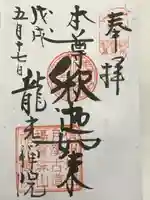 奉拝
本尊釈迦如来
戊戌
五月十七日
龍光禅院